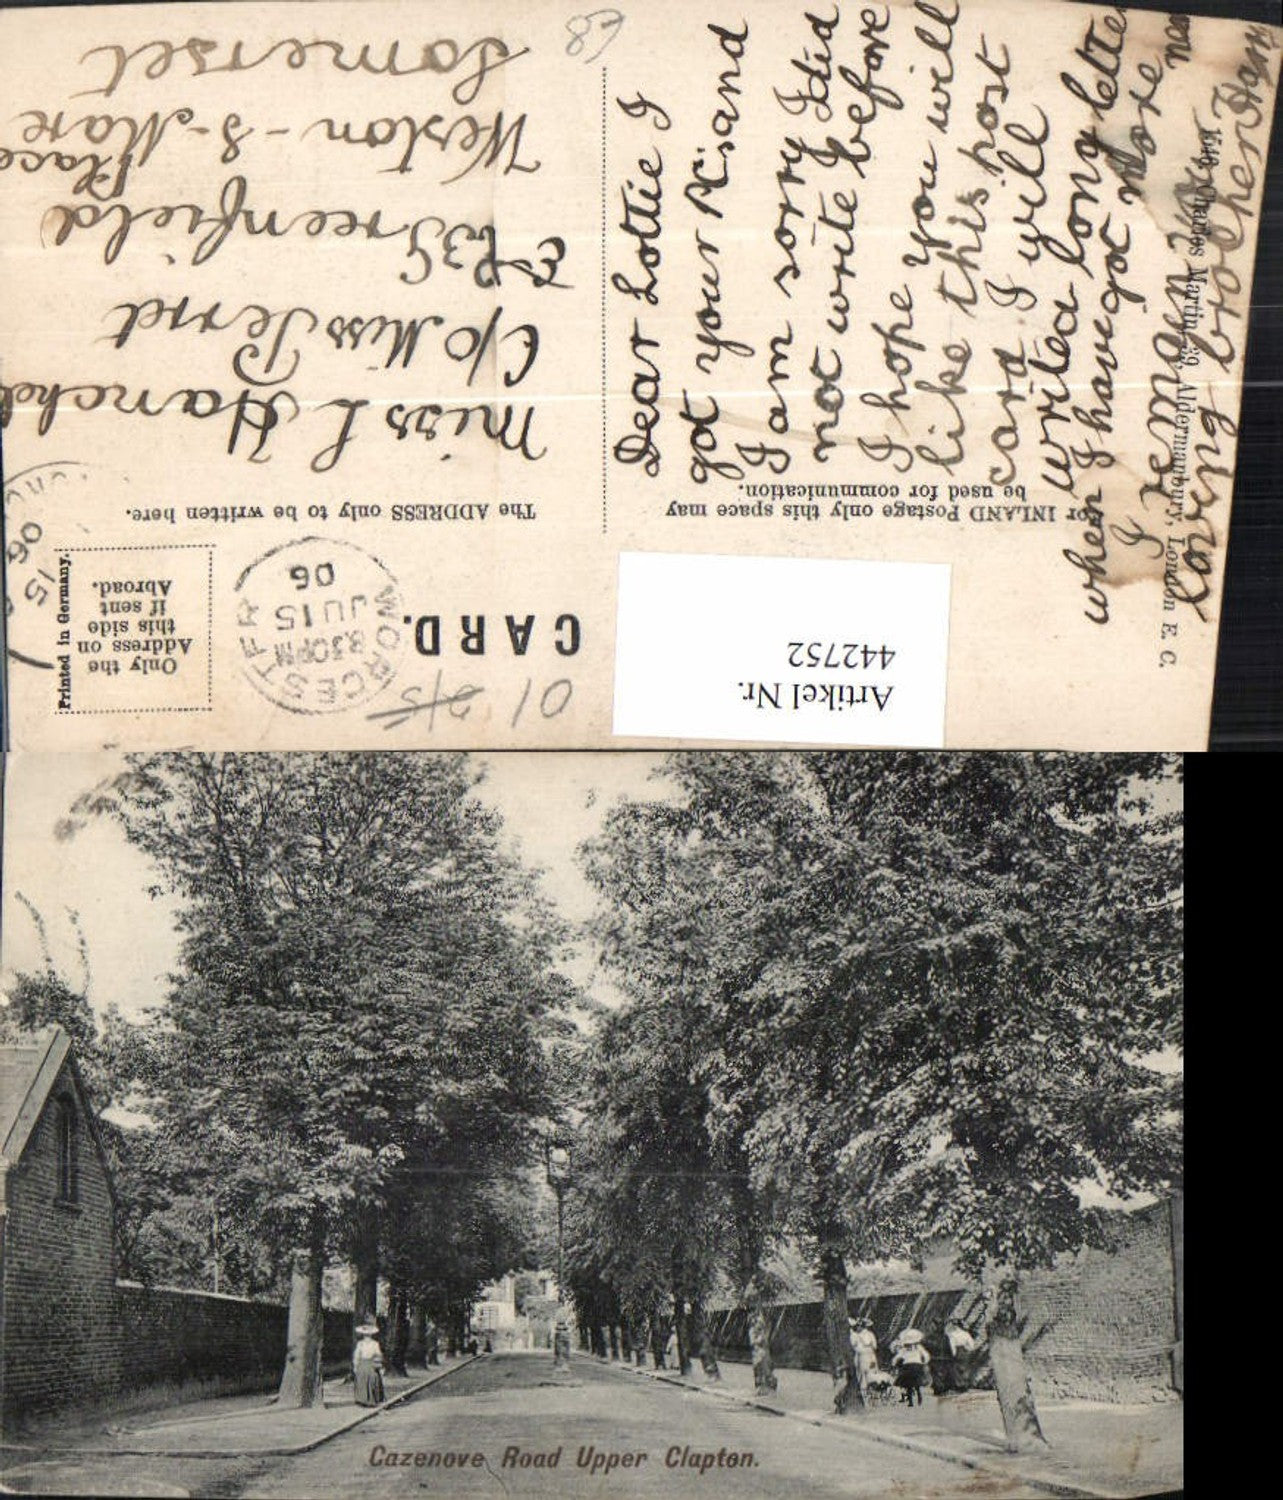 CARD.
The ADDRESS only to be written here.
For INLAND Postage only this space may
be used for communication.
Only the
Address on
this side
if sent
Abroad.
Printed in Germany.
WORCESTER
8.30PM
JU 15
06
15
06
01
2/5
Artikel Nr.
442752
Miss L Hanche
C/O Miss
3 Greenfield
Place
Weston-S-Mare
Somerset
Dear Lottie I
got your K's and
I am sorry I did
not write before
I hope you will
like this post
card I will
write a long letter
when I have got more
I remain
loving brother
1540 Charles Martin, 39, Aldermanbury, London E. C.
Cazenove Road Upper Clapton.